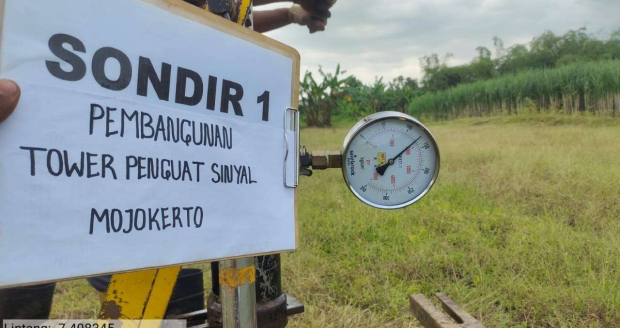 SONDIR 1
PEMBANGUNAN
TOWER PENGUAT SINYAL
MOJOKERTO
Lintang: -7.498345